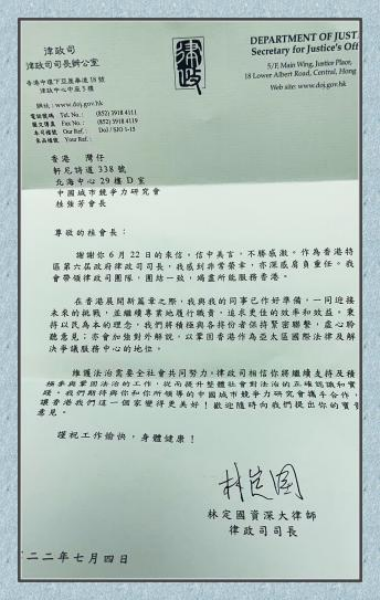 律政司
律政司司長辦公室
香港中環下亞厘畢道18號
律政中心中座5樓
網址：www.doj.gov.hk
電話號碼 Tel. No.: (852) 3918 4111
圖文傳真 Fax No.: (852) 3918 4119
本司檔號 Our Ref.: DoJ / SJO 5-15
來函檔號 Your Ref.:
律政
DEPARTMENT OF JUST
Secretary for Justice's Off
5/F, Main Wing, Justice Place,
18 Lower Albert Road, Central, Hong
Web site: www.doj.gov.hk
香港 灣仔
軒尼詩道338號
北海中心29樓D室
中國城市競爭力研究會
桂強芳會長
尊敬的桂會長：
謝謝你6月22日的來信，信中美言，不勝感激。作為香港特
區第六屆政府律政司司長，我感到非常榮幸，亦深感肩負重任。我
會帶領律政司團隊，團結一致，竭盡所能服務香港。
在香港展開新篇章之際，我與我的同事已作好準備，一同迎接
未來的挑戰，並繼續專業地履行職責，追求更佳的效率和效益。秉
持以民為本的理念，我們將積極與各持份者保持緊密聯繫，虛心聆
聽意見；亦會加強對外解說，以鞏固香港作為亞太區國際法律及解
決爭議服務中心的地位。
維護法治需要全社會共同努力。律政司相信你將繼續支持及積
極參與鞏固法治的工作，從而提升整體社會對法治的正確認識和實
踐。我們期待與你和你所領導的中國城市競爭力研究會攜手合作，
讓香港我們這一個家變得更美好！歡迎隨時向我們提出你的寶貴
意見。
謹祝工作愉快，身體健康！
林定國
林定國資深大律師
律政司司長
二二年七月四日